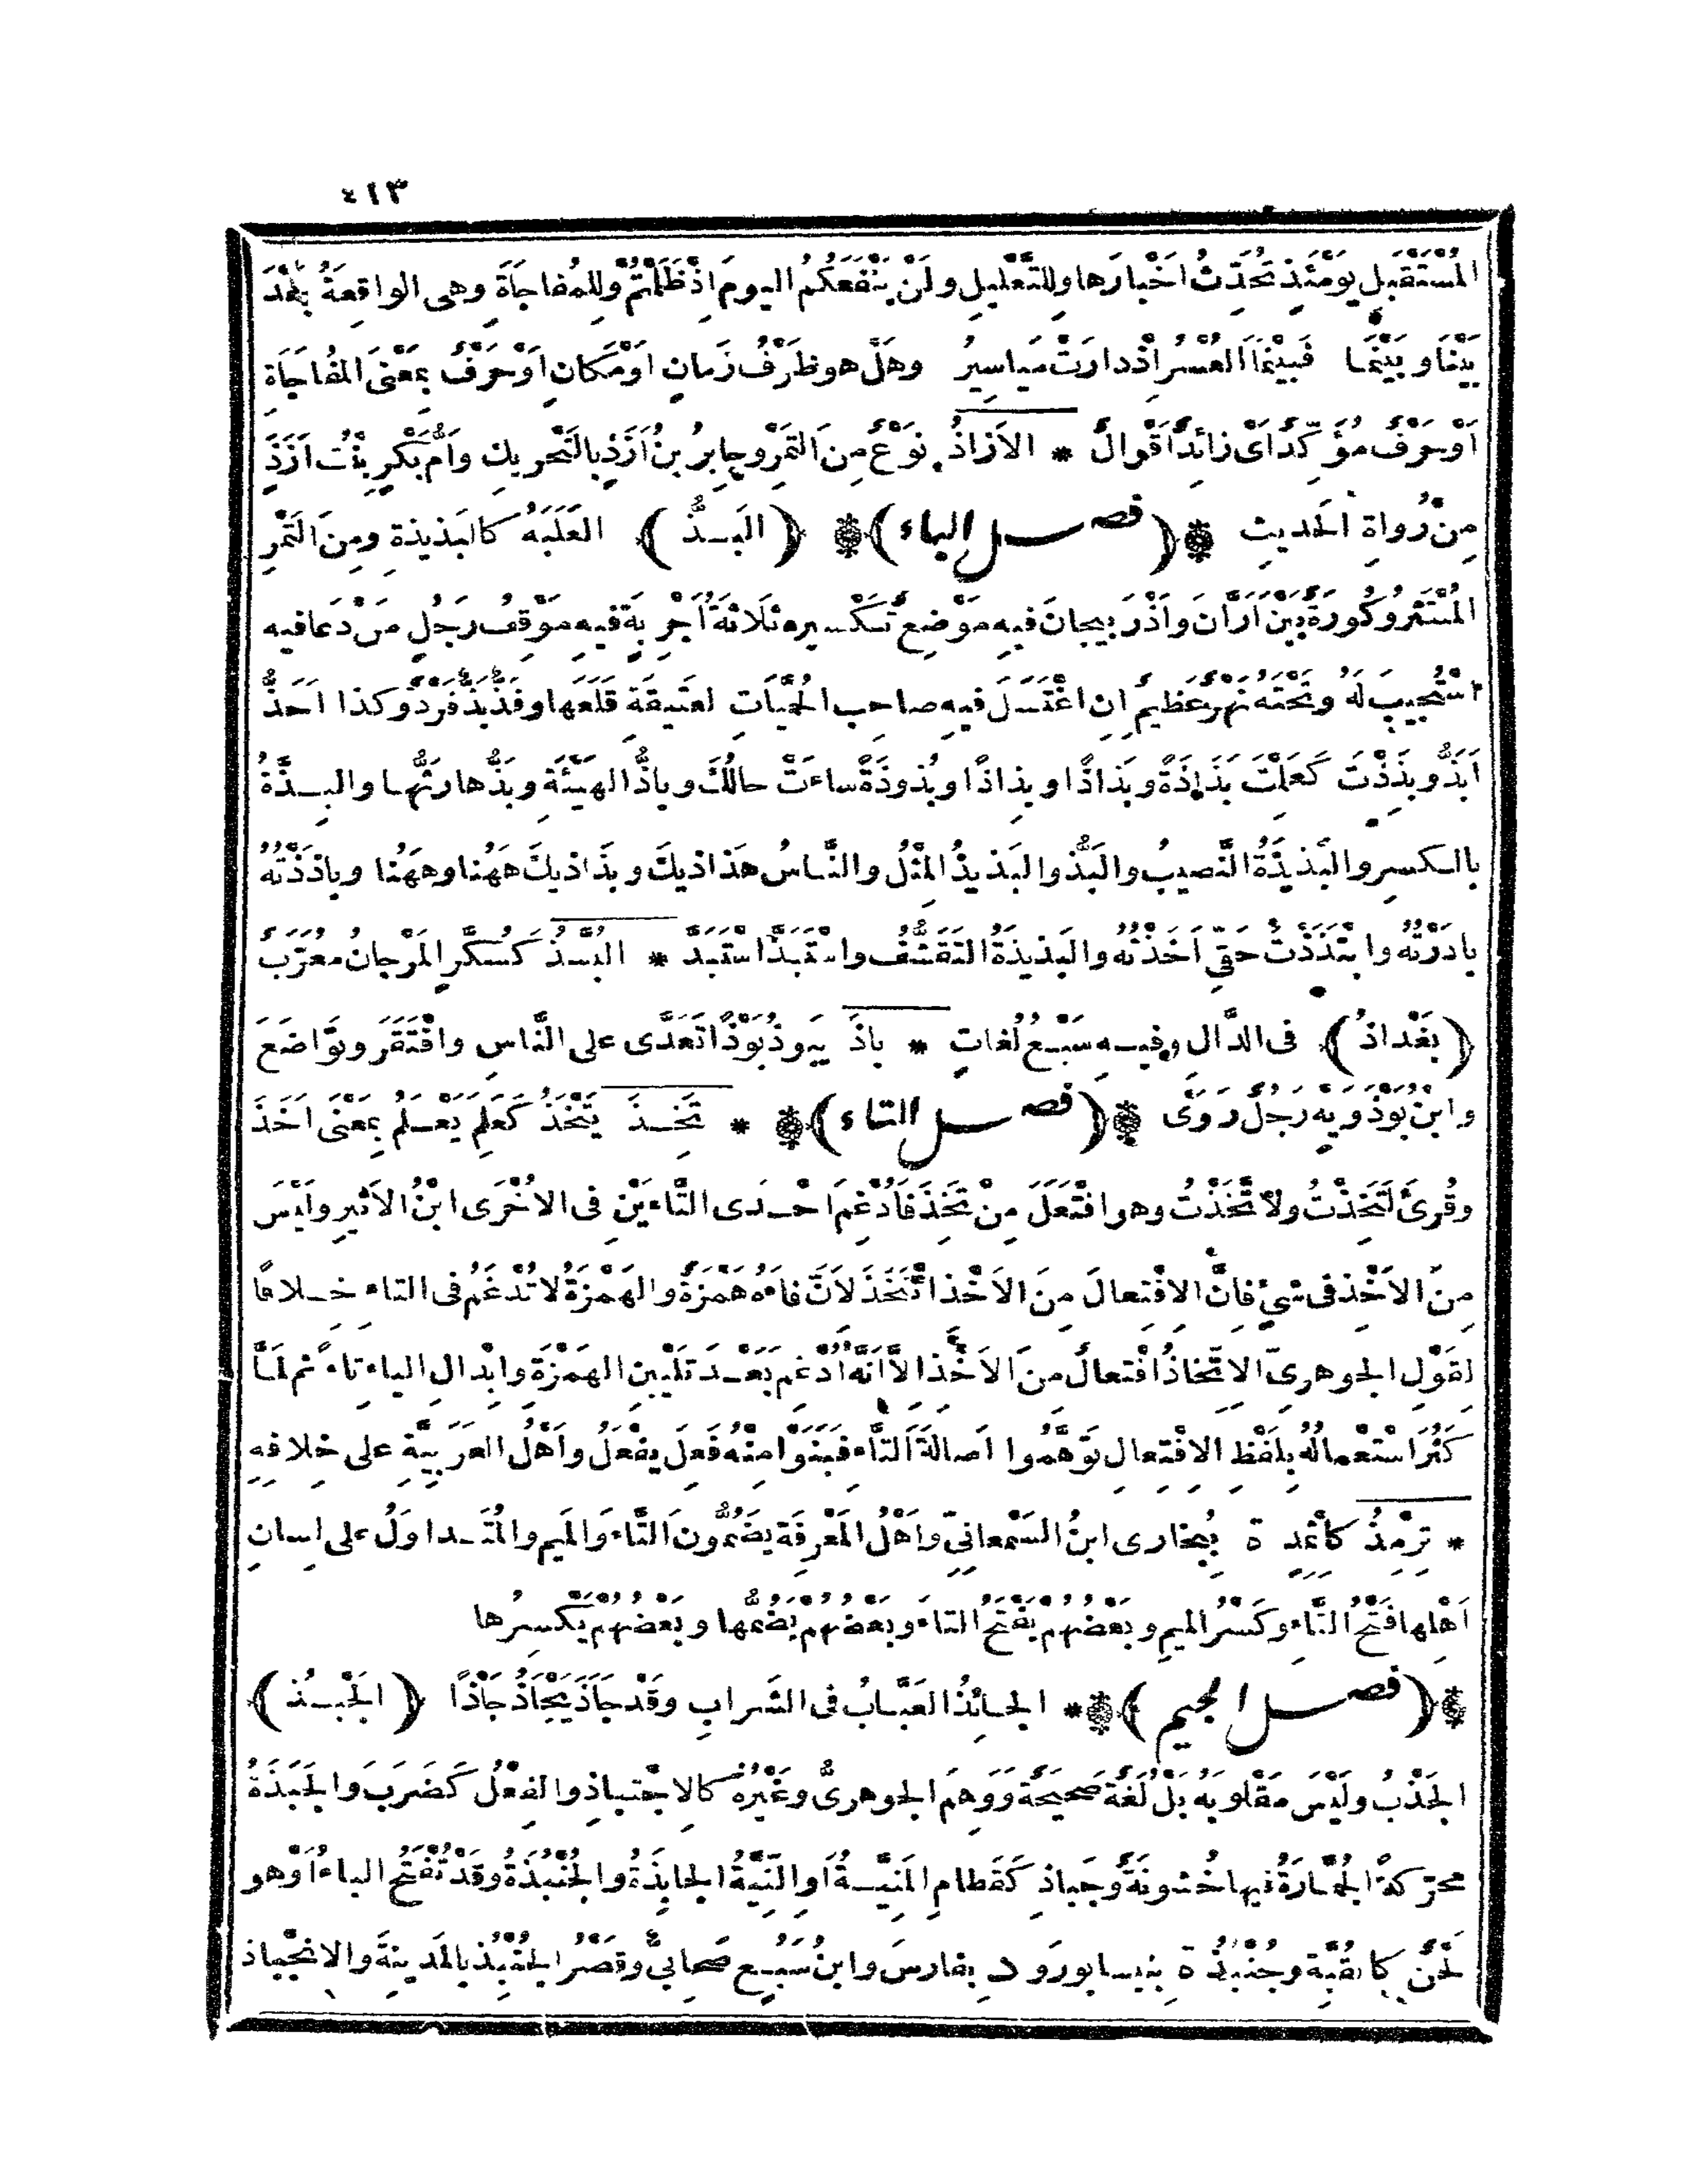 ٤١٣
المُسْتَقْبَلِ يَوْمَئِذٍ تُحَدِّثُ اَخْبارَها وللتَّعْليلِ ولَنْ يَنْفَعَكُمُ اليومَ اِذْ ظَلَمْتُمْ وللمُفاجَاَةِ وهى الواقِعَةُ بَعْدَ
بَيْنَا وبَيْنَما فَبَيْنَمَا العُسْرُ اِذْ دارَتْ مَياسِيرُ وهَلْ هو ظَرْفُ زَمانٍ اَوْ مَكانٍ اَوْ حَرْفٌ بِمَعْنَى المُفاجَاَةِ
اَوْ حَرْفٌ مُؤَكِّدٌ اَىْ زائِدٌ اَقْوالٌ * الاَزاذُ نَوْعٌ مِنَ التَّمْرِ وجابِرُ بنُ اَزَذٍ بالتَّحْريكِ واُمُّ بَكْرٍ بِنْتُ اَزَذٍ
مِنْ رُواةِ الحَديثِ ﴿فصــل الباء﴾ ﴿البَــذُّ﴾ الغَلَبَةُ كالبَذيذَةِ ومِنَ التَّمْرِ
المُنْتَثِرُ وكُورَةٌ بَيْنَ اَرّانَ واَذْرَبيجانَ فيهِ مَوْضِعٌ تَكْسيرُه ثَلاثَةُ اَجْرِبَةٍ فيهِ مَوْقِفُ رَجُلٍ مَنْ دَعا فيه
اسْتُجيبَ لَهُ وتَحْتَه نَهْرٌ عَظيمٌ اِنِ اغْتَسَلَ فيه صاحِبُ الحُمَّيَاتِ العَتيقَةِ قَلَعَها وفَذٌّ بَذٌّ فَرْدٌ وكذا اَحَذُّ
اَبَذُّ وبَذِذْتَ كَعَلِمْتَ بَذَاذَةً وبَذاذًا وبِذاذًا وبُذوذَةً ساءَتْ حالُكَ وباذُّ الهَيْئَةِ وبَذُّها رَثُّها والبِــذَّةُ
بالكسرِ والبَذيذَةُ النَّصيبُ والبَذُّ والبَذيذُ المِثْلُ والنّاسُ هَذَاذيكَ وبَذَاذيكَ هَهُنا وهَهُنا وباذَذْتُهُ
بادَرْتُهُ وابْتَذَذْتُ حَقّى اَخَذْتُه والبَذيذَةُ التَقَشُّفُ واسْتَبَذَّ اسْتَبَدَّ * البُسَّذُ كَسُكَّرٍ المَرْجانُ مُعَرَّبٌ
﴿بَغْداذُ﴾ فى الدَّالِ وفيــهِ سَبْــعُ لُغاتٍ * باذَ يَبوذُ بَوْذًا تَعَدَّى على النَّاسِ وافْتَقَرَ وتَوَاضَعَ
وابنُ بُوذَوَيْهِ رَجُلٌ رَوَى ﴿فصــل التاء﴾ * تَخِــذَ يَتْخَذُ كَعَلِمَ يَعْــلَمُ بِمَعْنَى اَخَذَ
وقُرِئَ لَتَخِذْتَ ولَاتَّخَذْتَ وهو افْتَعَلَ مِنْ تَخِذَ فَاُدْغِمَ اِحْــدَى التَّاءَيْنِ فى الاُخْرَى ابْنُ الاَثيرِ ولَيْسَ
مِنَ الاَخْذِ فى شئٍ فاِنَّ الاِفْتِعالَ مِنَ الاَخْذِ ائْتَخَذَ لاَنَّ فاءَهُ هَمْزَةٌ والهَمْزَةُ لا تُدْغَمُ فى التاء خِــلافًا
لِقَوْلِ الجوهرىِّ الاِتّخاذُ افْتِعالٌ مِنَ الاَخْذِ اِلاَّ اَنَّهُ اُدْغِمَ بَعْــدَ تَلْيينِ الهَمْزَةِ وابْدالِ الياءِ تاءً ثم لَمَّا
كَثُرَ اسْتِعْمالُهُ بِلَفْظِ الاِفْتِعالِ تَوَهَّمُوا اَصالَةَ التَّاءِ فَبَنَوْا مِنْهُ فَعِلَ يَفْعَلُ واَهْلُ العَرَبِيَّةِ على خِلافِهِ
* تِرْمِذُ كاِثْمِدٍ ة بِبُخارى ابنُ السَّمْعانِىِّ واَهْلُ المَعْرِفَةِ يَضُمُّونَ التَّاءَ والميمَ والمُتَــداوَلُ على لِسانِ
اَهْلِها فَتْحُ التَّاءِ وكَسْرُ الميمِ وبَعْضُهُمْ يَفْتَحُ التاءَ وبَعْضُهُمْ يَضُمُّها وبَعْضُهُمْ يَكْسِرُها
﴿فصــل الجيم﴾ * الجــائِذُ العَبَّــابُ فى الشَّرابِ وقَدْ جَاَذَ يَجْاَذُ جَاْذًا ﴿الجَبْــذُ﴾
الجَذْبُ ولَيْسَ مَقْلوبَهُ بَلْ لُغَةٌ صَحيحَةٌ ووَهِمَ الجوهرىُّ وغَيْرُهُ كالاِجْتِباذِ والفِعْلُ كَضَرَبَ والجَبَذَةُ
محرّكةً الجُمَّــارَةُ فيها خُشونَةٌ وجَباذِ كَقَطامِ المَنِيَّــةُ اَوِ النِّيَّةُ الجابِذَةُ والجُنْبُذَةُ وقَدْ تُفْتَحُ الباءُ اَوْ هو
لَحْنٌ كالقُبَّةِ وجُنْبُذُ ة بنيسابورَ و د بِفارِسَ وابنُ سَبُــعٍ صَحابىٌّ وقَصْرُ الجُنْبُذِ بالمَدينَةِ والاِنْجِباذُ